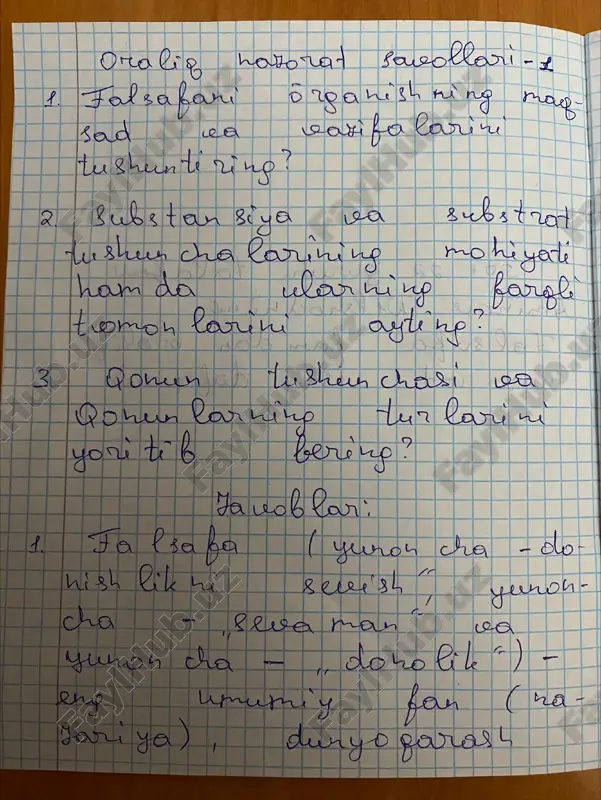 Oraliq nazorat savollari-1
1. Falsafani o'rganishning maq-
sad va vazifalarini
tushuntiring?
2. Substansiya va substrat
tushunchalarining mohiyati
hamda ularning farqli
tomonlarini ayting?
3. Qonun tushunchasi va
Qonunlarning turlarini
yoritib bering?
Javoblar:
1. Falsafa (yunoncha - do-
nishlikni sevish", yunon-
cha - "sevaman" va
yunoncha - "donolik") -
eng umumiy fan (na-
zariya), dunyoqarash
FaylHub.uz